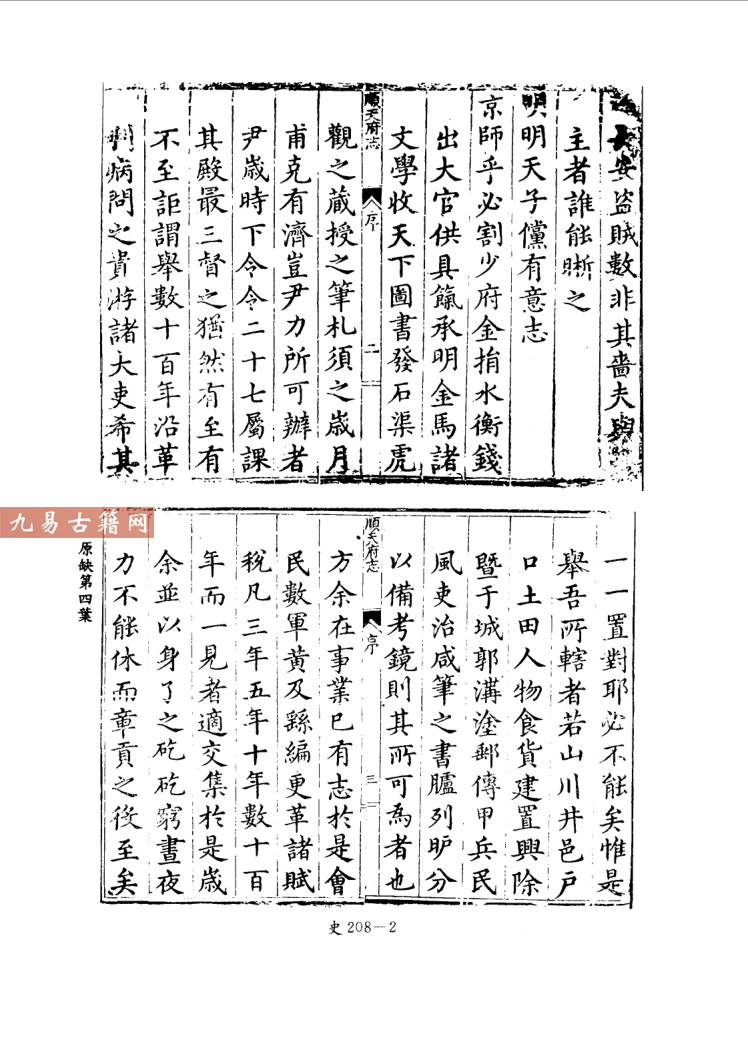 長安盜賊數非其嗇夫與
主者誰能晣之
明天子儻有意志
京師乎必割少府金捐水衡錢
出大官供具餼承明金馬諸
文學收天下圖書發石渠虎
順天府志 序 二
觀之蔵授之筆札須之歲月
甫克有濟豈尹力所可辦者
尹歲時下令令二十七屬課
其殿最三督之猶然有至有
不至詎謂舉數十百年沿革
病問之貴游諸大吏希其
一一置對耶必不能矣惟是
舉吾所轄者若山川井邑戶
口土田人物食貨建置興除
暨于城郭溝塗郵傳甲兵民
風吏治咸筆之書臚列昈分
以備考鏡則其所可為者也
順天府志 序 三
方余在事業已有志於是會
民數軍黃及繇編更革諸賦
稅凡三年五年十年數十百
年而一見者適交集於是歲
余並以身了之矻矻窮晝夜
力不能休而章貢之役至矣
原缺第四葉
九易古籍网
史208—2